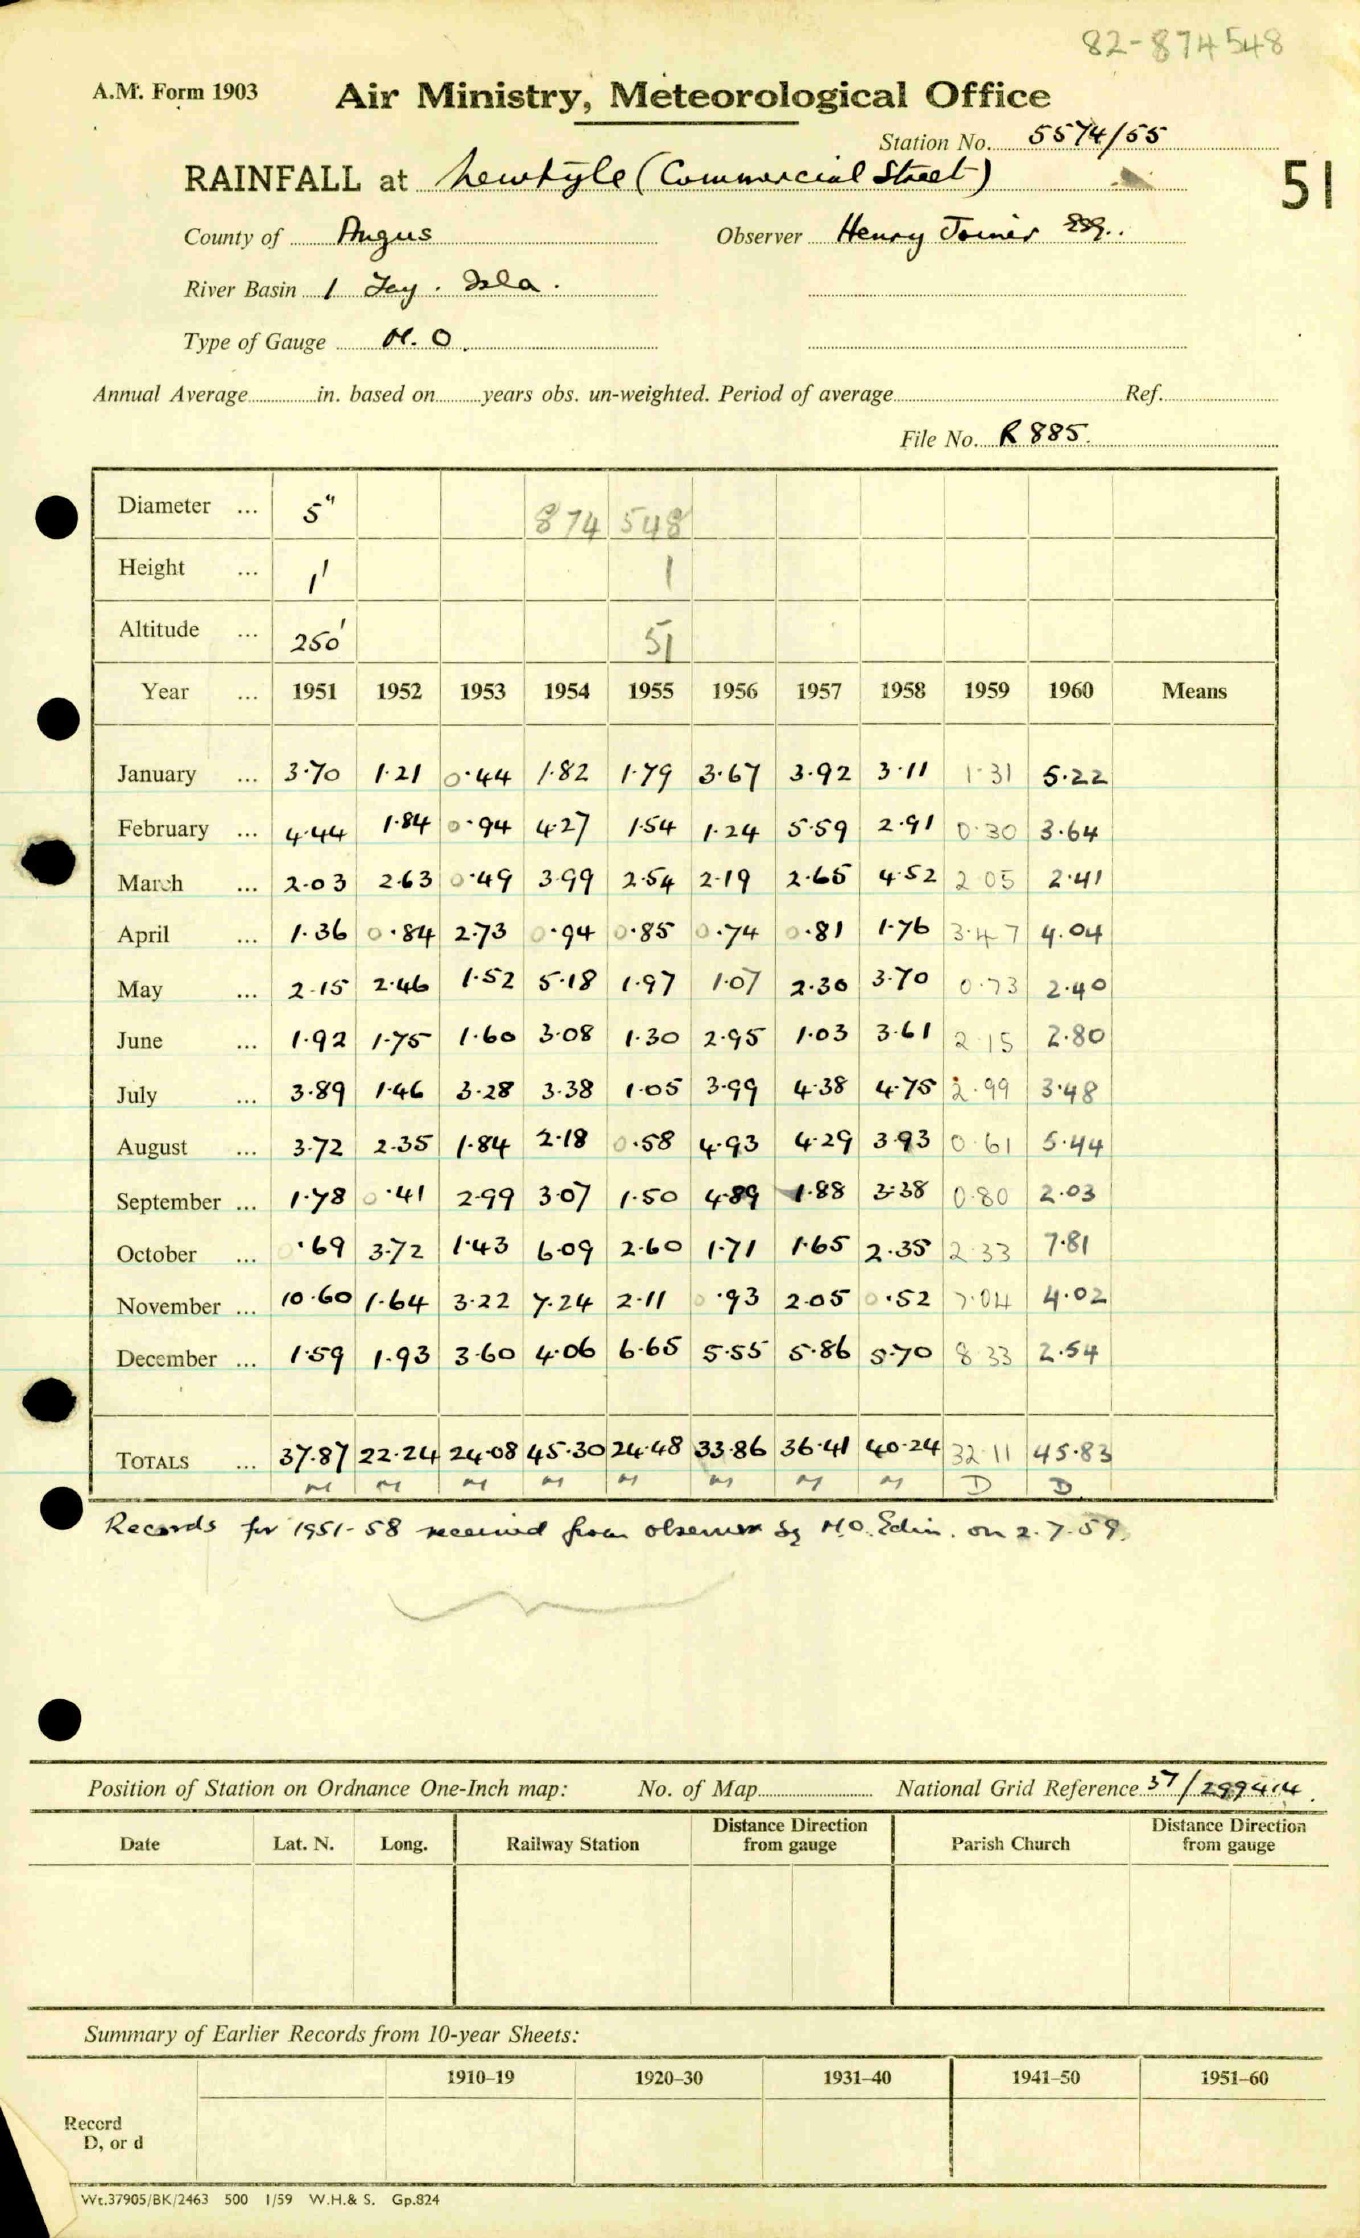 82-874548
A.M. Form 1903
Air Ministry, Meteorological Office
Station No. 5574/55
51
RAINFALL at Newtyle (Commercial Street)
County of Angus Observer Henry Joiner Esq.
River Basin 1 Tay. Isla.
Type of Gauge M.O.
Annual Average in. based on years obs. un-weighted. Period of average Ref.
File No. R 885.
Diameter ... 5" 874 548
Height ... 1' 1
Altitude ... 250' 51
Year ... 1951 1952 1953 1954 1955 1956 1957 1958 1959 1960 Means
January ... 3.70 1.21 0.44 1.82 1.79 3.67 3.92 3.11 1.31 5.22
February ... 4.44 1.84 0.94 4.27 1.54 1.24 5.59 2.91 0.30 3.64
March ... 2.03 2.63 0.49 3.99 2.54 2.19 2.65 4.52 2.05 2.41
April ... 1.36 0.84 2.73 0.94 0.85 0.74 0.81 1.76 3.47 4.04
May ... 2.15 2.46 1.52 5.18 1.97 1.07 2.30 3.70 0.73 2.40
June ... 1.92 1.75 1.60 3.08 1.30 2.95 1.03 3.61 2.15 2.80
July ... 3.89 1.46 3.28 3.38 1.05 3.99 4.38 4.75 2.99 3.48
August ... 3.72 2.35 1.84 2.18 0.58 4.93 4.29 3.93 0.61 5.44
September ... 1.78 0.41 2.99 3.07 1.50 4.89 1.88 3.38 0.80 2.03
October ... 0.69 3.72 1.43 6.09 2.60 1.71 1.65 2.35 2.33 7.81
November ... 10.60 1.64 3.22 7.24 2.11 0.93 2.05 0.52 7.04 4.02
December ... 1.59 1.93 3.60 4.06 6.65 5.55 5.86 5.70 8.33 2.54
TOTALS ... 37.87 22.24 24.08 45.30 24.48 33.86 36.41 40.24 32.11 45.83
M M M M M M M M D D
Records for 1951-58 received from observer by M.O. Edin. on 2.7.59.
Position of Station on Ordnance One-Inch map: No. of Map National Grid Reference 37/
Date Lat. N. Long. Railway Station Distance Direction from gauge Parish Church Distance Direction from gauge
Summary of Earlier Records from 10-year Sheets:
1910–19 1920–30 1931–40 1941–50 1951–60
Record
D, or d
Wt.37905/BK/2463 500 1/59 W.H.& S. Gp.824